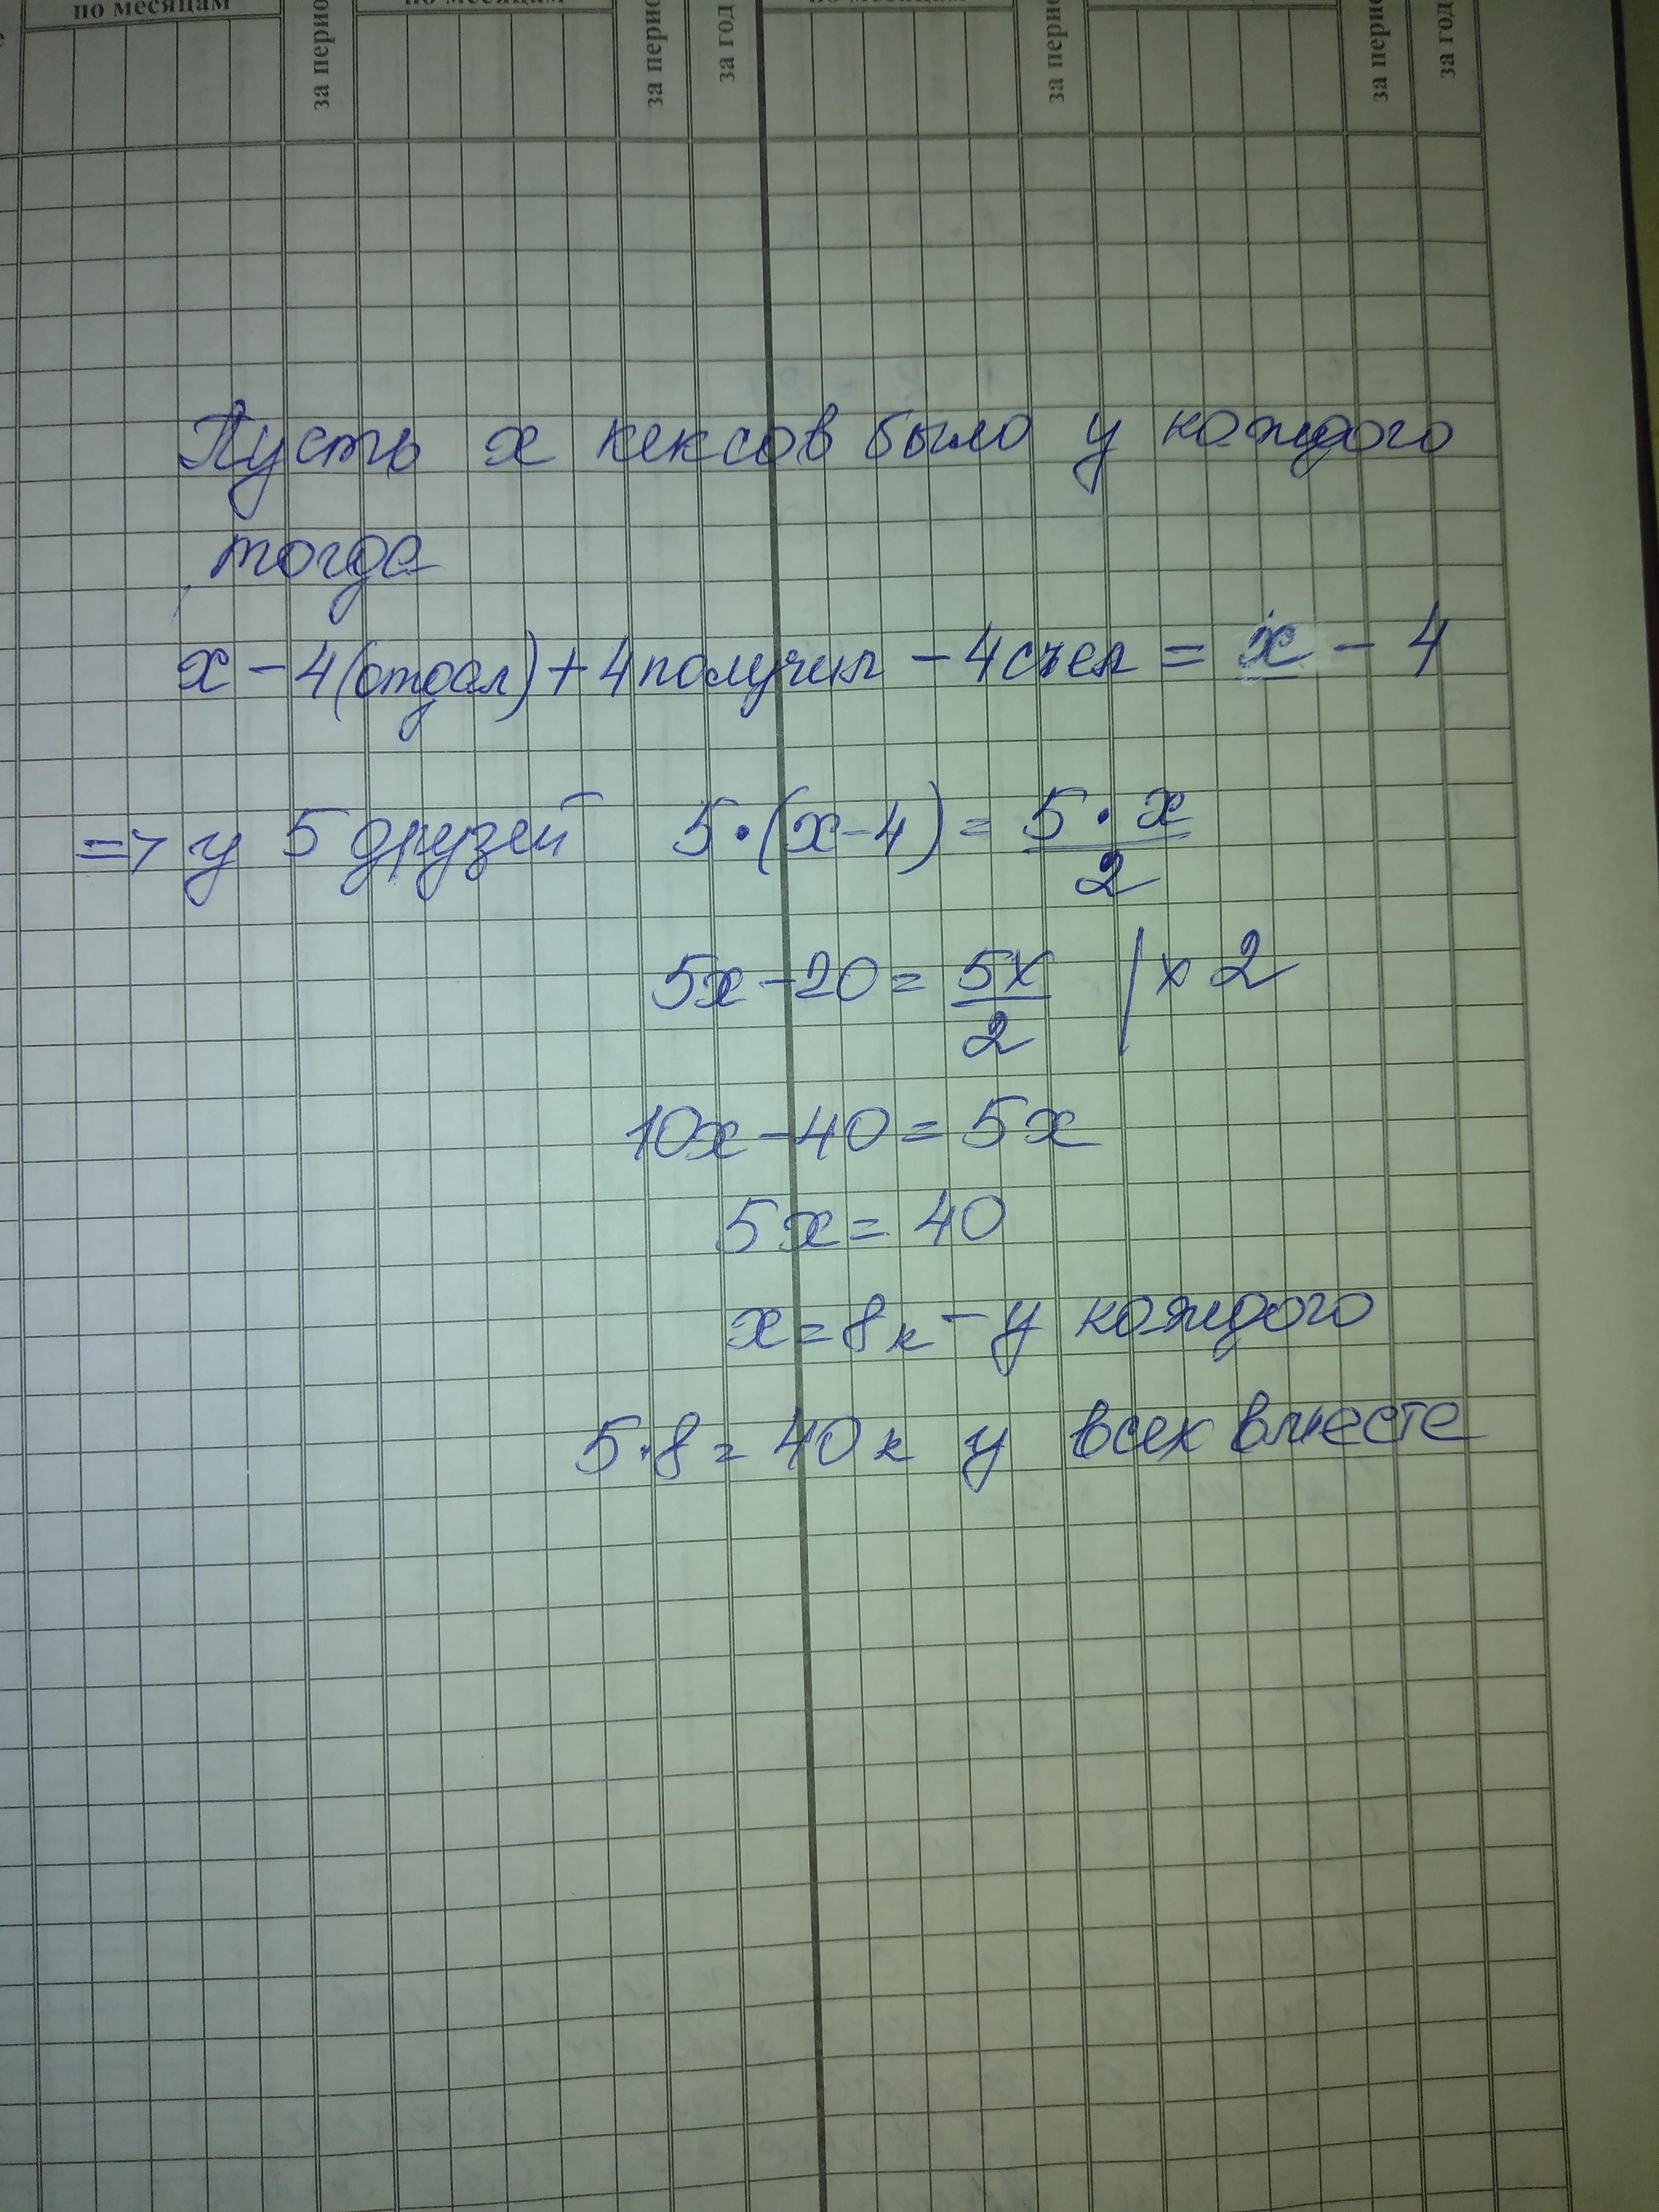 по месяцам
за перио
за перио
за год
за перио
за перио
за год
Пусть x кексов было у каждого
тогда
x - 4 (отдал) + 4 получил - 4 съел = x - 4
=> у 5 друзей 5·(x-4) = 5·x/2
5x - 20 = 5x/2 | × 2
10x - 40 = 5x
5x = 40
x = 8к - у каждого
5·8 = 40 к у всех вместе